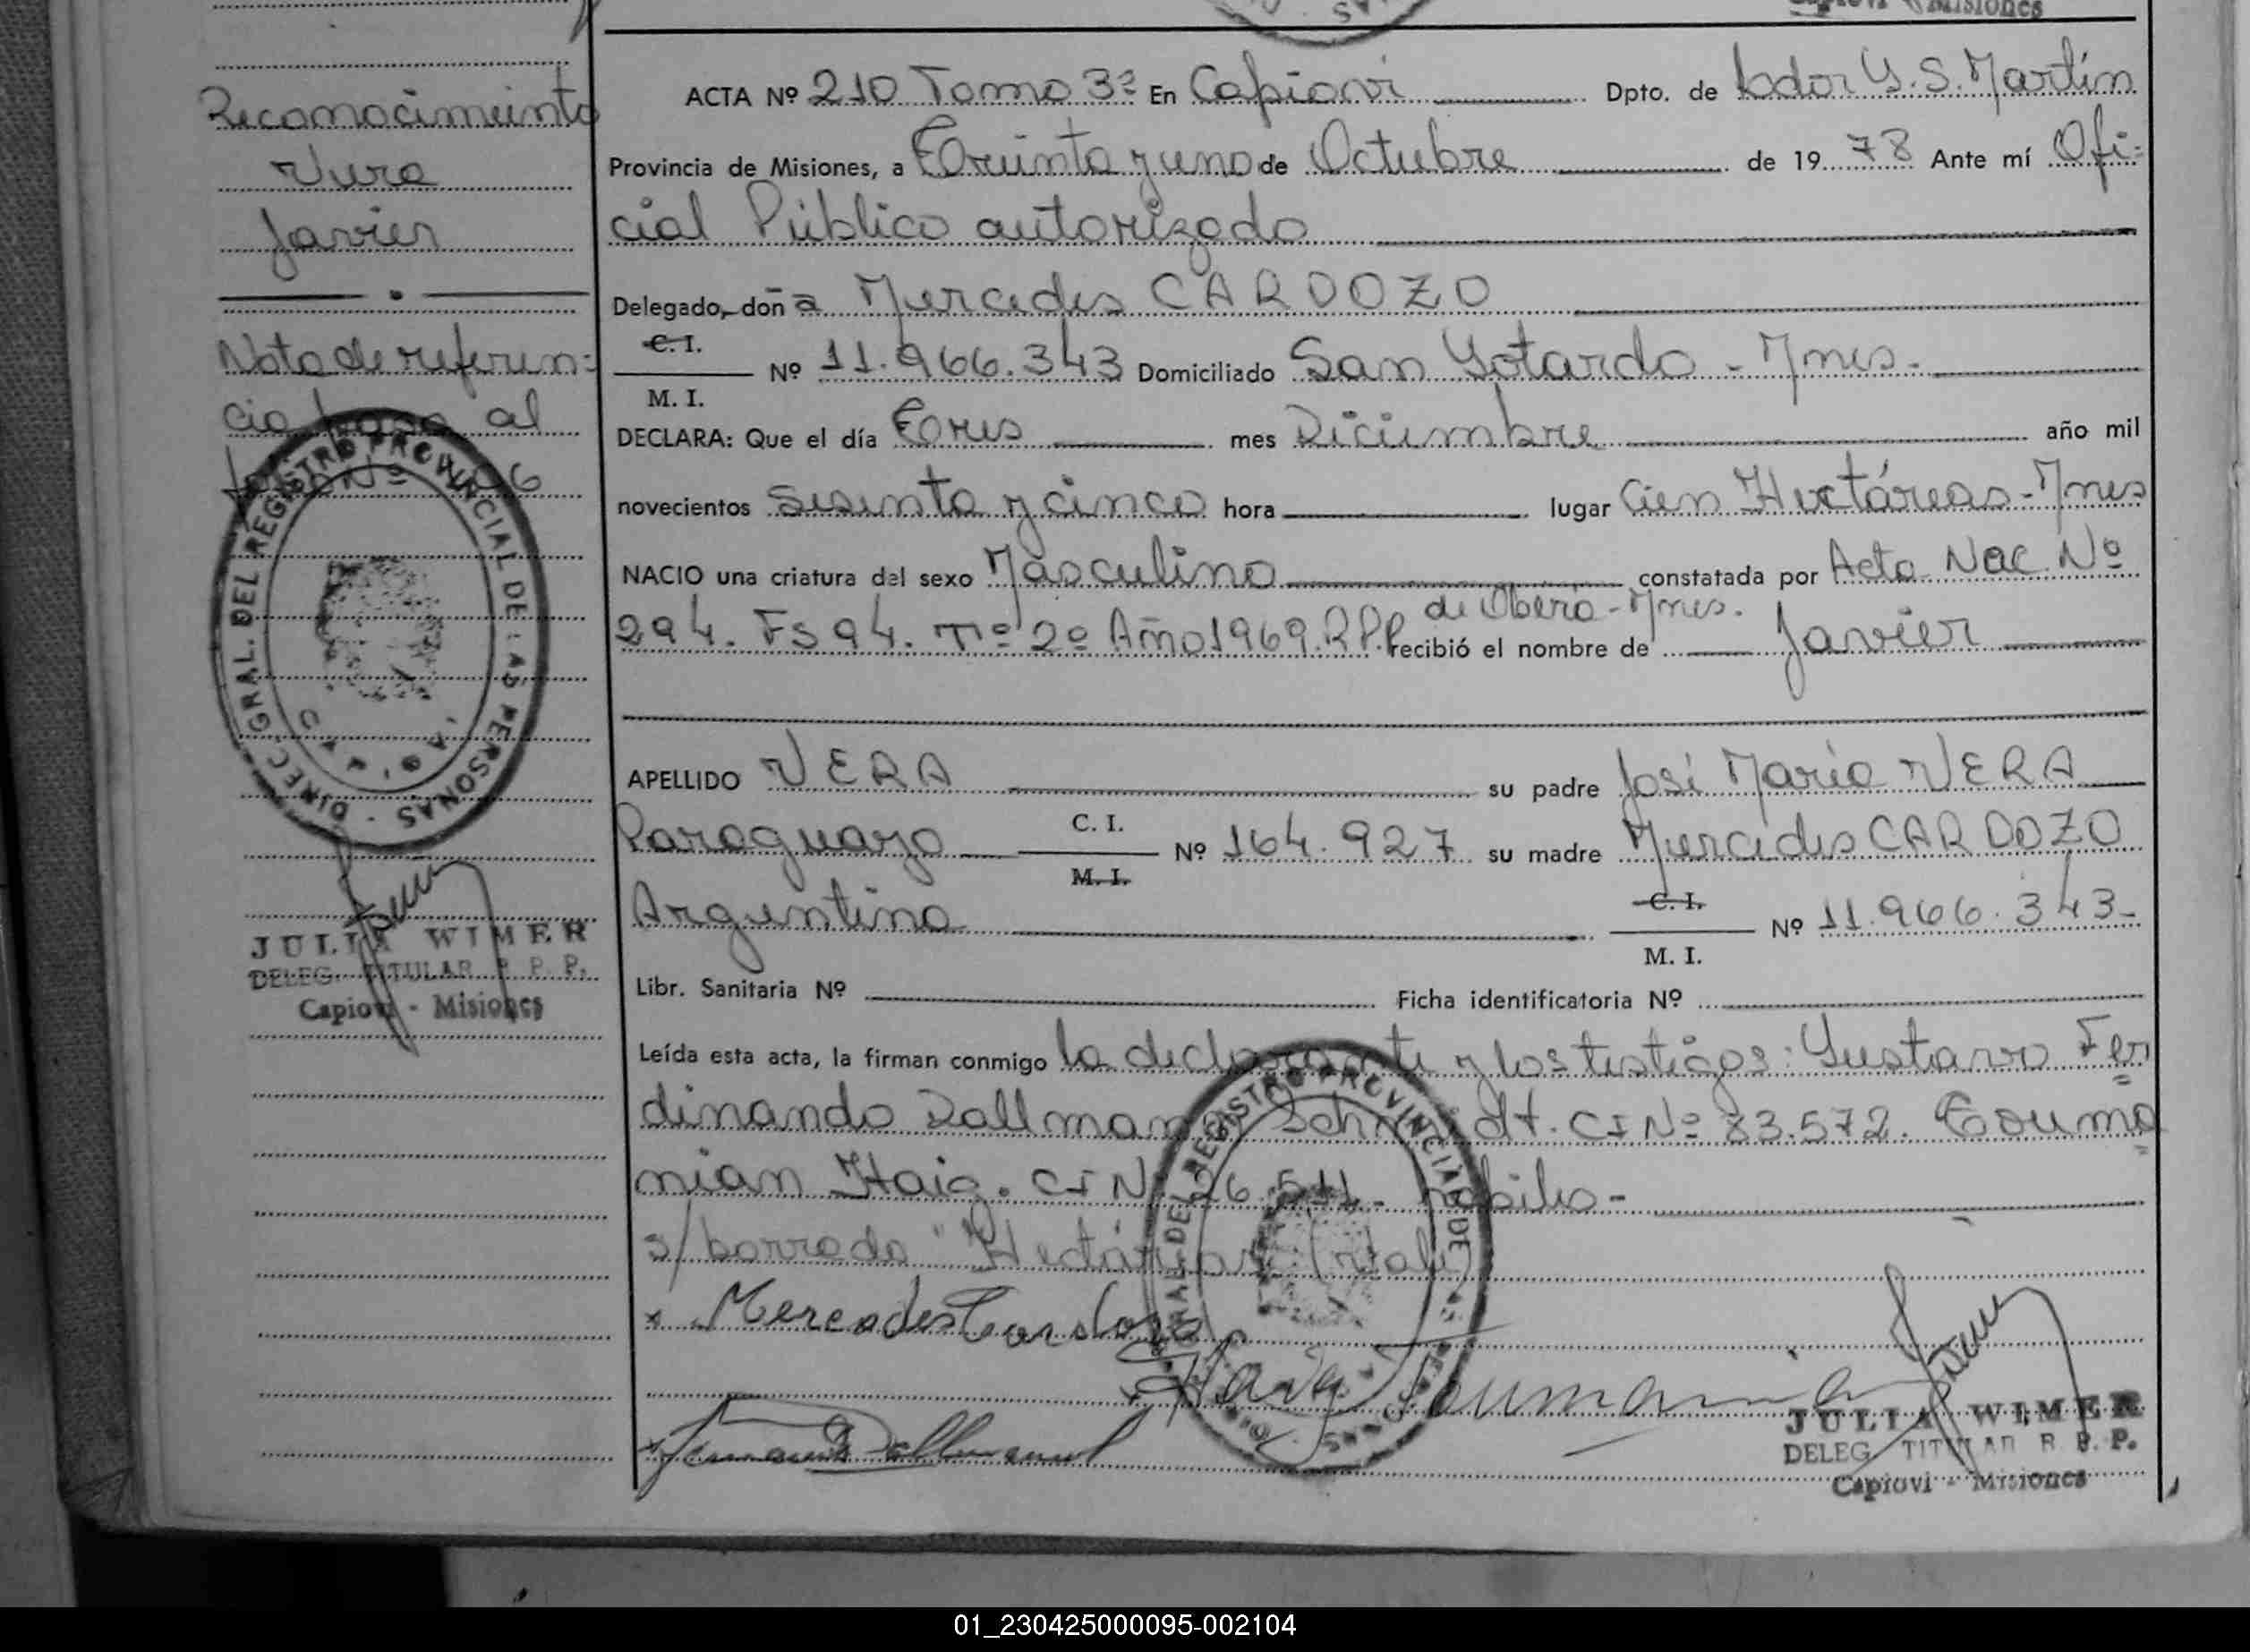 Capiovi - Misiones
ACTA Nº 210 Tomo 3º En Capiovi Dpto. de Ldor G.S. Martín
Provincia de Misiones, a Treinta y uno de Octubre de 1978 Ante mí Ofi-
cial Público autorizado
Delegado, doña Mercedes CARDOZO
C. I.
Nº 11.966.343 Domiciliado San Gotardo - Mnes.
M. I.
DECLARA: Que el día Tres mes Diciembre año mil
novecientos Sesenta y cinco hora lugar Cien Hectáreas - Mnes
NACIO una criatura del sexo Masculino constatada por Acta Nac. Nº
de Oberá - Mnes.
294. Fs 94. Tº 2º Año 1969. R.P.P. recibió el nombre de Javier
APELLIDO VERA su padre José María VERA
Paraguayo C. I. Nº 164.927 su madre Mercedes CARDOZO
M. I.
Argentina C. I. Nº 11.966.343-
M. I.
Libr. Sanitaria Nº Ficha identificatoria Nº
Leída esta acta, la firman conmigo la declarante y los testigos: Gustavo Fer
dinando Dallmann Schmidt. CI Nº 83.572. Touma
nian Haig. CI Nº hábiles-
s/borrado "Hectáreas" (vale)
Mercedes Cardozo
Haig Toumanian
Dallmann
JULIA WIMER
DELEG. TITULAR R. P. P.
Capiovi - Misiones
Reconocimiento
Vera
Javier
Nota de referen-
cia al
Nº
DIREC. GRAL. DEL REGISTRO PROVINCIAL DE LAS PERSONAS
JULIA WIMER
DELEG. TITULAR R. P. P.
Capiovi - Misiones
DIREC. GRAL. DEL REGISTRO PROVINCIAL DE LAS PERSONAS
01_230425000095-002104